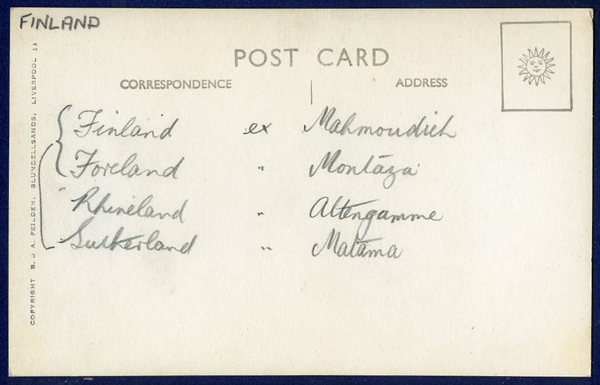 FINLAND
POST CARD
CORRESPONDENCE
ADDRESS
COPYRIGHT B. & A. FEILDEN, BLUNDELLSANDS, LIVERPOOL 23
Finland ex Mahmoudieh
Foreland " Montāza
" Rhineland " Altengamme
Sutherland " Matāma